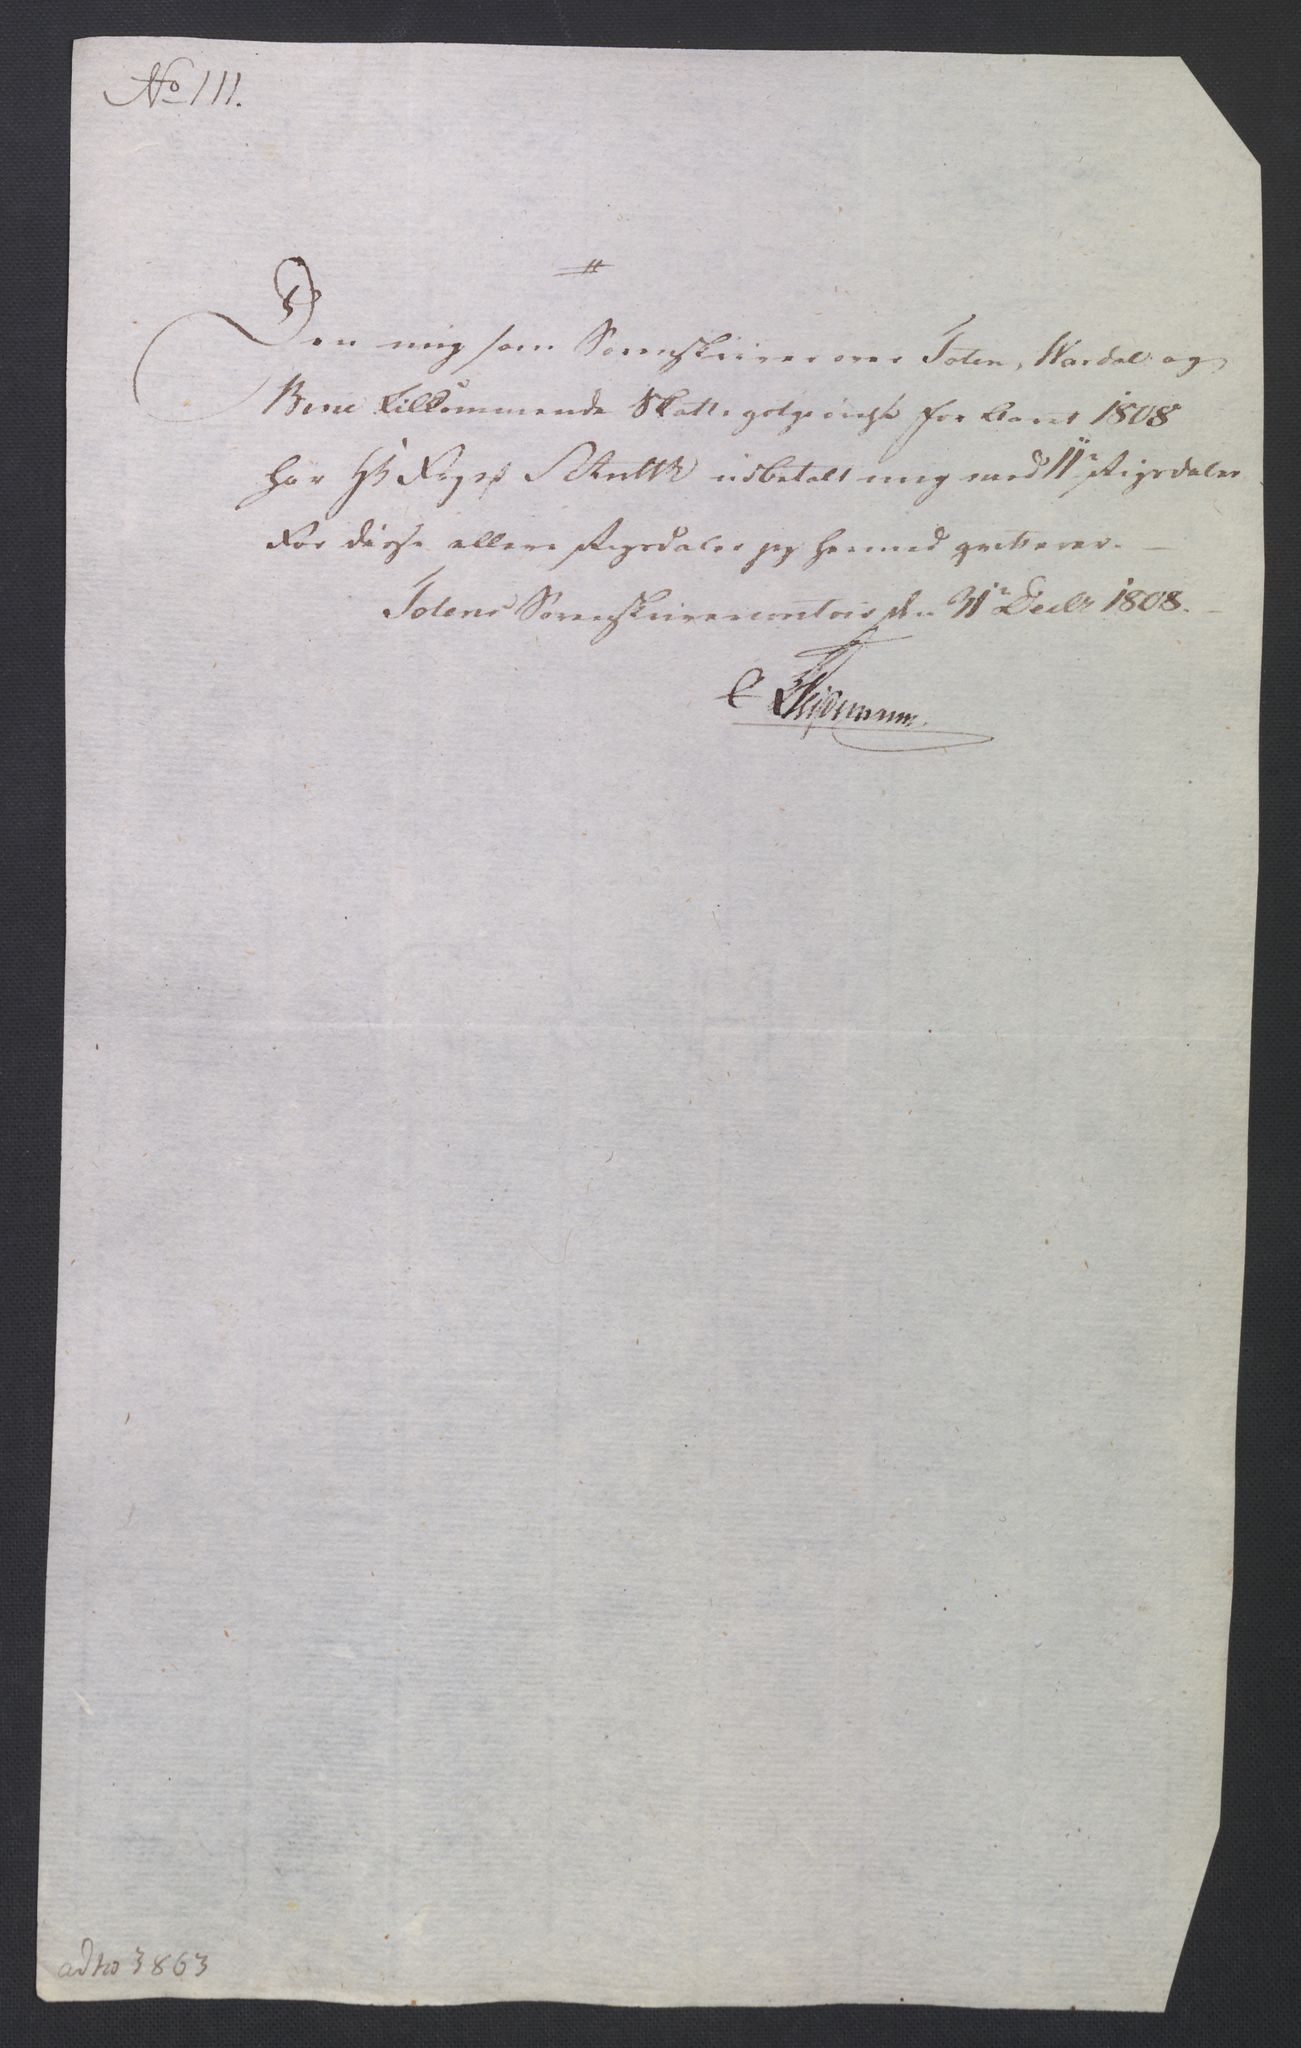 No 111.
Den mig som Sorenskriver over Toten, Wardal og
Birie tilkommende Skatte for Aaret 1808
har Hr Foged Schultz udbetalt mig med 11 Rigsdaler
For disse elleve Rigsdaler jeg hermed qvitterer. —
Totens Sorenskrivercontoir den 31te Decbr 1808. —
C
ad No 3863